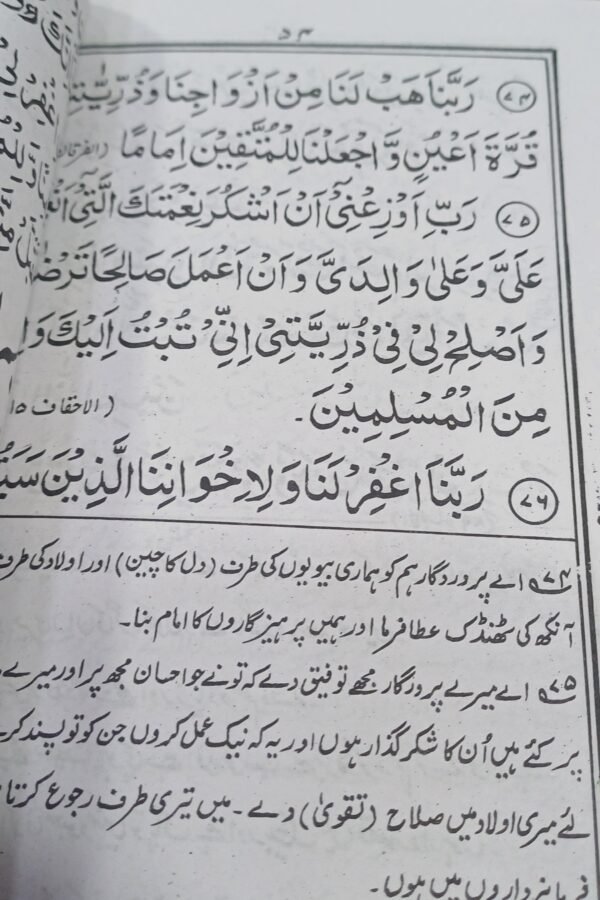 ۵۳
۷۴ رَبَّنَا هَبْ لَنَا مِنْ اَزْوَاجِنَا وَذُرِّيّٰتِنَا
قُرَّةَ اَعْيُنٍ وَّاجْعَلْنَا لِلْمُتَّقِيْنَ اِمَامًا (الفرقان
۷۵ رَبِّ اَوْزِعْنِيْٓ اَنْ اَشْكُرَ نِعْمَتَكَ الَّتِيْٓ
عَلَيَّ وَعَلٰى وَالِدَيَّ وَاَنْ اَعْمَلَ صَالِحًا
وَاَصْلِحْ لِيْ فِيْ ذُرِّيَّتِيْ اِنِّيْ تُبْتُ اِلَيْكَ
مِنَ الْمُسْلِمِيْنَ۔ (الاحقاف ۱۵
۷۶ رَبَّنَا اغْفِرْ لَنَا وَلِاِخْوَانِنَا الَّذِيْنَ
۷۴ اے پروردگار ہم کو ہماری بیویوں کی طرف (دل کا چین) اور اولاد کی طرف
آنکھ کی ٹھنڈک عطا فرما اور ہمیں پرہیزگاروں کا امام بنا۔
۷۵ اے میرے پروردگار مجھے توفیق دے کہ تونے جو احسان مجھ پر اور میرے
پر کئے ہیں اُن کا شکر گذار ہوں اور یہ کہ نیک عمل کروں جن کو تو پسند کرے
لئے میری اولاد میں صلاح (تقویٰ) دے۔ میں تیری طرف رجوع کرتا
فرمانبرداروں میں ہوں۔